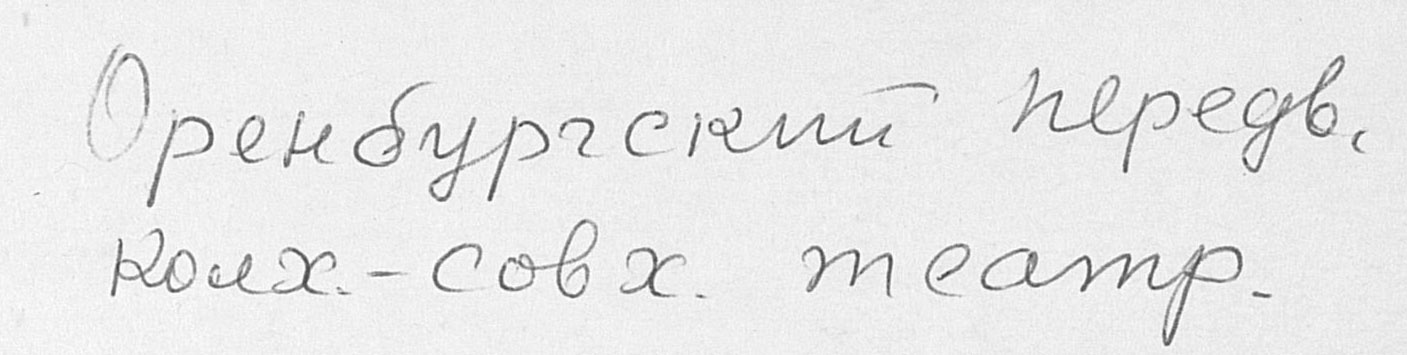 Оренбургский передв.
колх.-совх. театр.